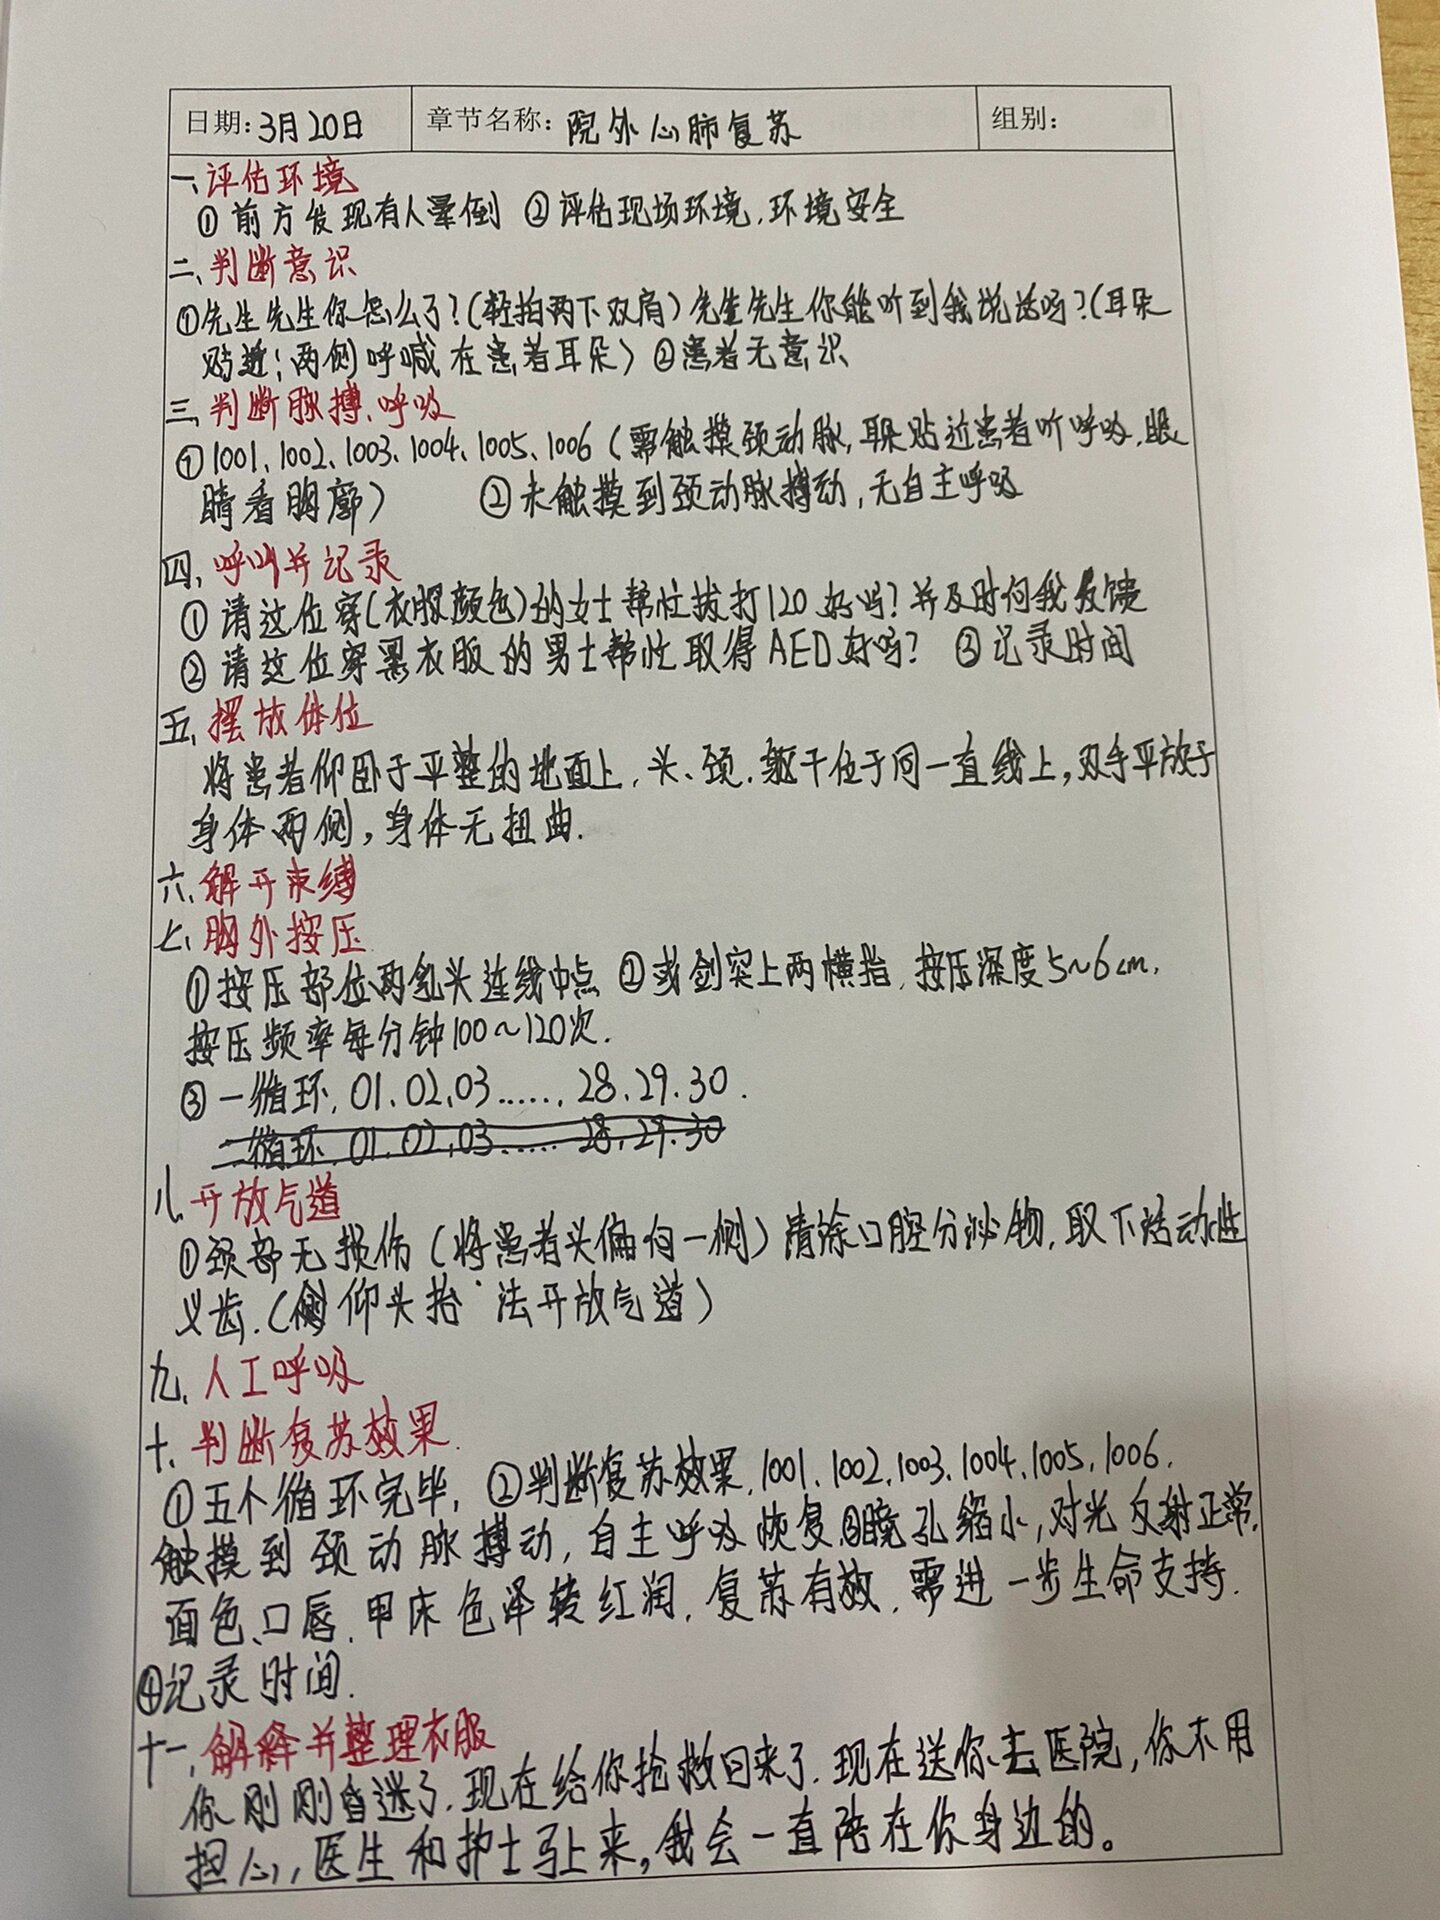 日期:3月20日 章节名称:院外心肺复苏 组别:
一、评估环境
①前方发现有人晕倒 ②评估现场环境,环境安全
二、判断意识
①先生先生你怎么了?(轻拍两下双肩)先生先生你能听到我说话吗?(耳朵
贴近;两侧呼喊在患者耳朵)②患者无意识
三、判断脉搏、呼吸
①1001、1002、1003、1004、1005、1006(需触摸颈动脉,耳朵贴近患者听呼吸,眼
睛看胸廓) ②未触摸到颈动脉搏动,无自主呼吸
四、呼叫并记录
①请这位穿(衣服颜色)的女士帮忙拔打120好吗?并及时向我反馈
②请这位穿黑衣服的男士帮忙取得AED好吗? ③记录时间
五、摆放体位
将患者仰卧于平整的地面上,头、颈、躯干位于同一直线上,双手平放于
身体两侧,身体无扭曲.
六、解开束缚
七、胸外按压
①按压部位两乳头连线中点 ②或剑突上两横指,按压深度5~6cm,
按压频率每分钟100~120次.
③一循环,01.02.03......28.29.30.
二循环,01.02.03......28.29.30
八、开放气道
①颈部无损伤(将患者头偏向一侧)清涂口腔分泌物,取下活动性
义齿.(仰头抬 法开放气道)
九、人工呼吸
十、判断复苏效果.
①五个循环完毕, ②判断复苏效果,1001、1002、1003、1004、1005、1006.
触摸到颈动脉搏动,自主呼吸恢复.③瞳孔缩小,对光反射正常,
面色、口唇、甲床色泽转红润,复苏有效,需进一步生命支持.
④记录时间.
十一、解释并整理衣服
你刚刚昏迷了.现在给你抢救回来了.现在送你去医院,你不用
担心,医生和护士马上来,我会一直陪在你身边的。